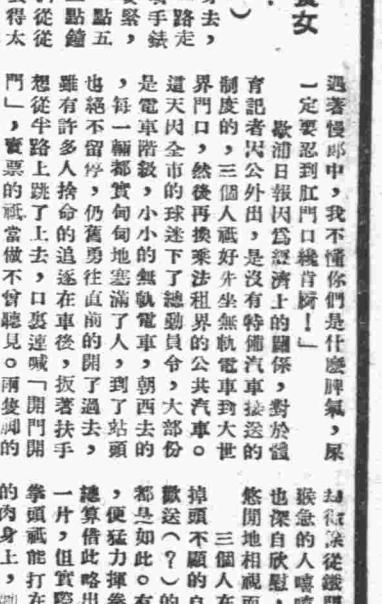 女
身去，
）
路走
手錶
緊，
點五
點鐘
從從
得太
遇著慢郎中，我不懂你們是什麼脾氣，屎
一定要忍到肛門口纔肯屙！」
歇浦日報因為經濟上的關係，對於體
育記者因公外出，是沒有特備汽車接送的
制度的，三個人祇好先坐無軌電車到大世
界門口，然後再換乘法租界的公共汽車。
這天因全市的球迷下了總動員令，大部份
是電車階級，小小的無軌電車，朝西去的
，每一輛都實甸甸地塞滿了人，到了站頭
也絕不留停，仍舊勇往直前的開了過去，
雖有許多人捨命的追逐在車後，扳著扶手
想從半路上跳了上去，口裏連喊「開門開
門」，賣票的祇當做不曾聽見。兩隻脚的
從鐵門
猴急的人嘻嘻
也深自欣慰，
悠閒地相視而
三個人在
掉頭不顧的自
歡送（？）的
都是如此。有
，便猛力揮拳
總算借此略出
一片，但實際
拳頭祇能打在
的肉身上，